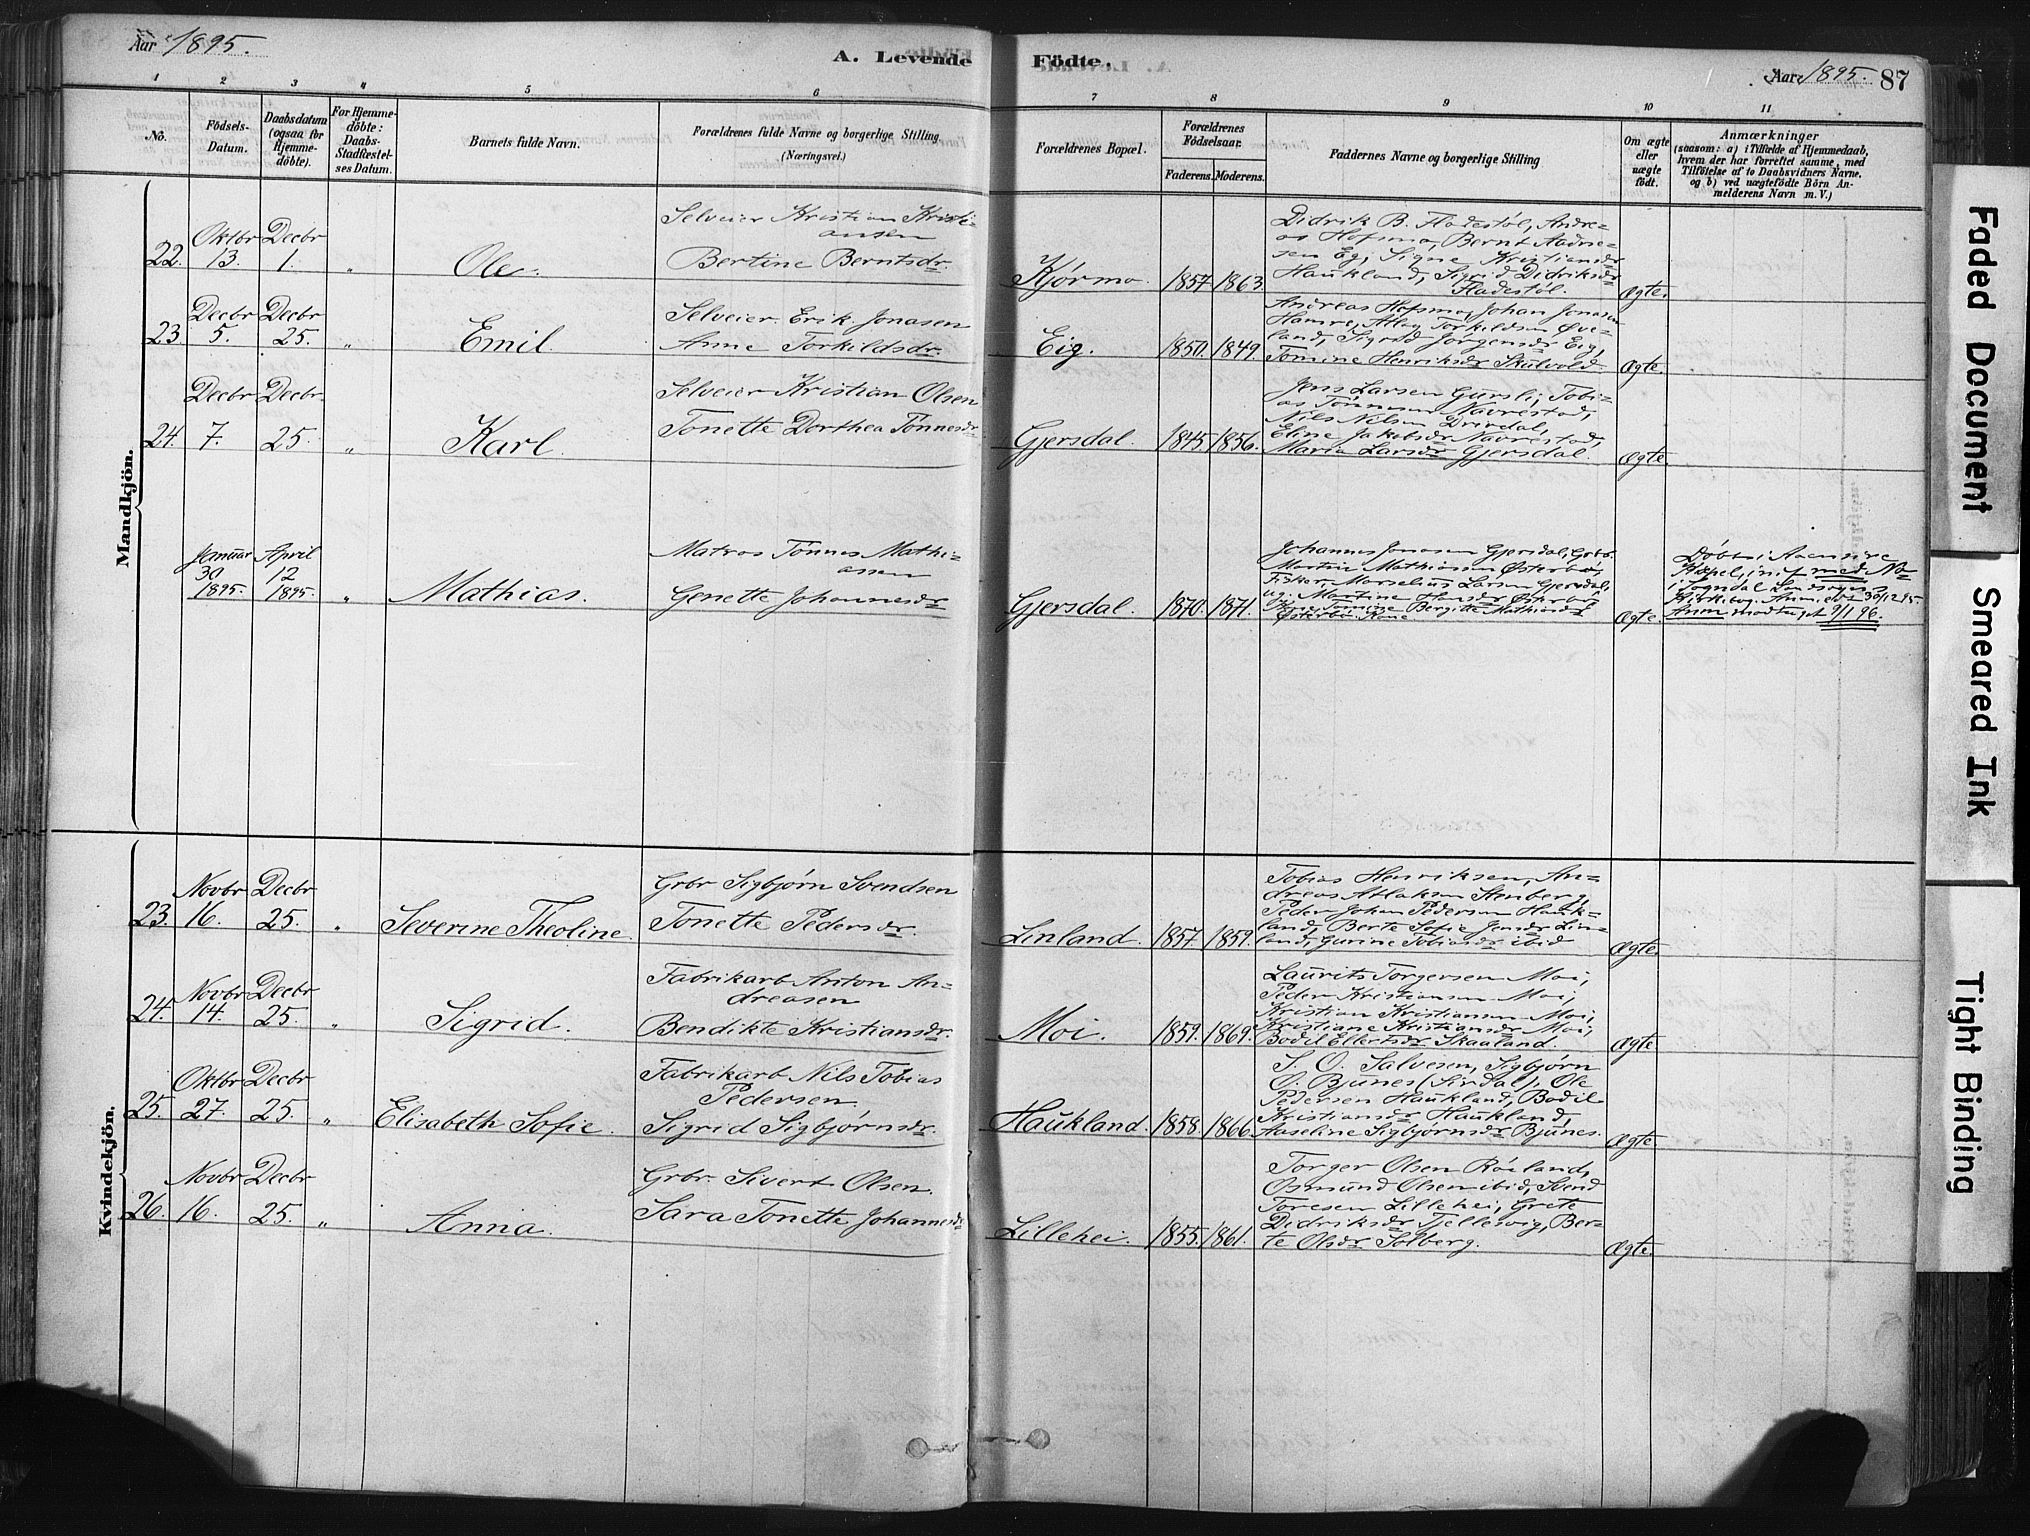 Aar 1895.
A. Levende Födte.
Aar 1895. 87
1 2 3 4 5 6 7 8 9 10 11
No.
Födsels-
Datum.
Daabsdatum
(ogsaa for
Hjemme-
döbte).
For Hjemme-
döbte:
Daabs-
Stadfæstel-
ses Datum.
Barnets fulde Navn.
Forældrenes fulde Navne og borgerlige Stilling
(Næringsvei.)
Forældrenes Bopæl.
Forældrenes
Födselsaar.
Faderens. Moderens.
Faddernes Navne og borgerlige Stilling
Om ægte
eller
uægte
født.
Anmærkninger
(saasom: a) i Tilfælde af Hjemmedaab,
hvem der har forrettet samme, med
Tilföielse af to Daabsvidners Navne.
og b) ved uægtefödte Börn An-
melderens Navn m. V.)
Mandkjön.
22. Oktbr 13. Decbr 1. " Ole.
Selveier Kristian Kristi-
ansen
Bertine Berntsdr.
Kjørmo. 1857 1863.
Didrik B. Fladestøl, Andre-
as Hofsmo, Bernt Aadne-
sen Eg, Signe Kristiansdr
Haukland, Sigrid Didriksdr
Fladestøl.
Ægte.
23. Decbr 5. Decbr 25. " Emil.
Selveier Erik Jonasen
Anne Torkildsdr.
Eig. 1850. 1849.
Andreas Hofsmo, Johan Jonasen
Hamre, Atlag Torkildsen Øve-
land, Sigrid Jørgensdr Eig,
Tomine Henriksdr Skulvold
Ægte.
24. Decbr 7. Decbr. 25. " Karl.
Selveier Kristian Olsen
Tonette Dorthea Tønnesdr
Gjersdal. 1845. 1856.
Jens Larsen Gursli, Tobi-
as Tønnesen Navrestad,
Nils Nilsen Drivdal,
Eline Jakobsdr Navrestad,
Maria Larsdr Gjersdal.
Ægte.
Januar 30 1895. April 12 1895. " Mathias.
Matros Tønnes Mathi-
assen
Genette Johannesdr
Gjersdal. 1870. 1871.
Johannes Jonasen Gjersdal, Grbr.
Martin Mathiasen Østerbø,
Fisker, Marselius Larsen Gjersdal,
ug. Martine Hansdr Østerbø
Tomine Bergitte Mathiasdr
Østerbø Kone.
Ægte.
Døbt i Aaensire
Kapel, inf. med No
i Sogndal Landsogns
Kirkebog. Anm. 30/12 95.
Anm modtaget 9/1 96.
Kvindekjön.
23. Novbr 16. Decbr 25. " Severine Theoline.
Grbr Sigbjørn Svendsen
Tonette Pedersdr.
Linland. 1857. 1859.
Tobias Henriksen, An-
dreas Atlaksen Stenberg,
Peder Johan Pedersen Hauk-
land, Berte Sofie Jensdr Lin-
land, Gurine Tobiasdr ibid
Ægte.
24. Novbr 14. Decbr 25. " Sigrid.
Fabrikarb Anton An-
dreasen
Bendikte Kristiansdr.
Moi. 1859. 1869.
Laurits Torgersen Moi,
Peder Kristiansen Moi,
Kristian Kristiansen Moi,
Kristiane Kristiansdr Moi,
Bodil Ellertsdr Skaaland.
Ægte.
25. Oktbr 27. Decbr 25. " Elisabeth Sofie.
Fabrikarb Nils Tobias
Pedersen.
Sigrid Sigbjørnsdr.
Haukland. 1858. 1866.
S. O. Salvesen, Sigbjørn
S. Bjunes (Sirdal), Ole
Pedersen Haukland, Bodil
Kristiansdr Haukland,
Aaseline Sigbjørnsdr Bjunes.
Ægte.
26. Novbr 16. Decbr 25. " Anna.
Grbr. Sivert Olsen.
Sara Tonette Johannesdr
Lillehei. 1855. 1861.
Torger Olsen Røiland,
Osmund Olsen ibid, Svend
Toresen Lillehei, Grete
Didriksdr Tjellesvig, Ber-
te Olsdr Solberg.
Ægte.
Faded Document
Smeared Ink
Tight Binding